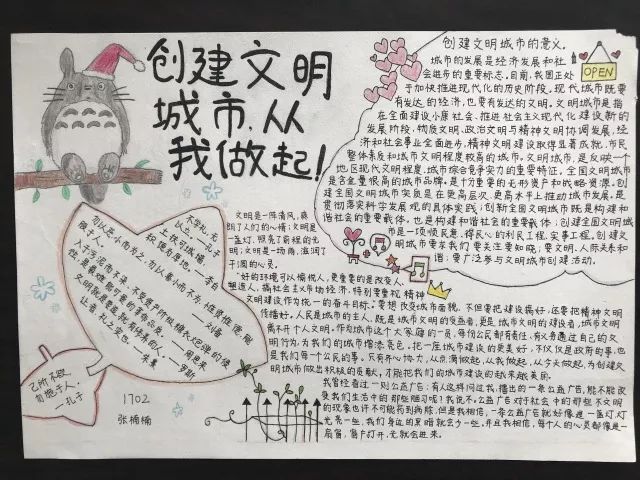 创建文明
城市,从
我做起!
创建文明城市的意义。
OPEN
城市的发展是经济发展和社
会进步的重要标志。目前,我国正处
于加快推进现代化的历史阶段,现代城市既要
有发达的经济,也要有发达的文明。文明城市是指
在全面建设小康社会、推进社会主义现代化建设新的
发展阶段,物质文明、政治文明与精神文明协调发展,经
济和社会事业全面进步,精神文明建设取得显著成就,市民
整体素质和城市文明程度较高的城市。文明城市,是反映一个
地区现代文明程度、城市综合竞争力的重要特征,全国文明城市
是含金量很高的城市品牌,是十分重要的无形资产和战略资源。创
建全国文明城市实质是在更高层次、更高水平上推动城市发展,是
贯彻落实科学发展观的具体实践;创新全国文明城市既是构建和
谐社会的重要载体,也是构建和谐社会的重要创建;创建全国文明城
市是一项顺民意、得民心的利民工程,实事工程。创建文
明城市要求我们要关注要知晓;要文明、人际关系和
谐;要广泛参与文明城市创建活动。
不学礼,无
以立。一孔子
土扶可城墙,
积德为厚地。一李白
勿以恶小而为之,勿以善小而不为。惟贤惟德,能
服于人。一刘备
入于污泥而不染、不受资产阶级糖衣炮弹的侵
蚀,是最难能可贵的革命品质。一周恩来
让者,礼之实也。朱熹
己所不欲
勿施于人。
一孔子
1702
张楠楠
文明是一阵清风,
明了人们的心情;文明是
一盏灯,照亮了前程的光
明;文明是一场雨,滋润了
干涸的心灵。
好的环境可以愉悦人,更重要的是改变人、
塑造人,搞社会主义市场经济,特别要重视精神
文明建设作为统一的奋斗目标。要想改变城市面貌,不但要把建设搞好,还要把精神文明
传播好。人民是城市的主人,既是城市文明的受益者,更是城市文明的建设者,城市文明
离不开个人文明。作为城市这个大家庭的一员,每份公民都有责任,有义务通过自己的文
明行为,为我们的城市增添亮色。把一座城市建设的更美好,不仅仅是政府的事,也
是我们每一个公民的事。只有齐心协力,从点滴做起,从我做起,从今天做起,为创建文
明城市做出积极的贡献,才能把我们的城市建设的越来越美丽。
我曾经看过一则公益广告:有人这样问过我,播出的一条公益广告,能不能改
变我们生活中的那些陋习呢?我说不。公益广告对于社会中的那些不文明
的现象也许不可能药到病除,但是我相信,一条公益广告就好像是一盏灯,灯
光亮一些,我们身边的黑暗就会少一些,并且我相信,每个人的心灵都像是一
扇窗,窗户打开,光就会进来。